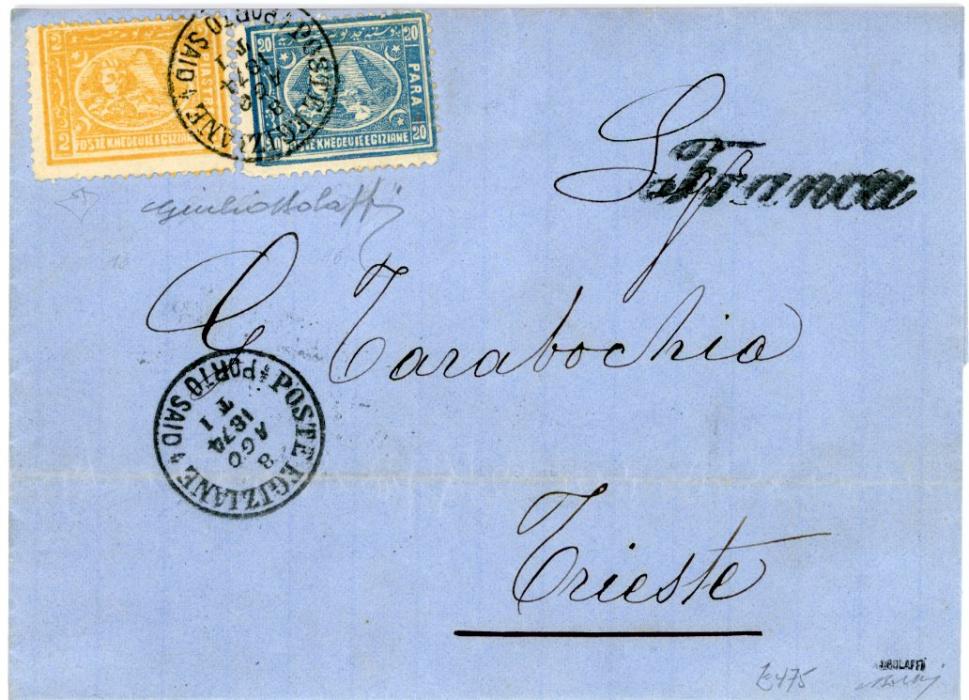 2 PIASTRE 2
POSTE KHEDEUIE EGIZIANE
20 بوسته خديويه مصريه 20
PARA
20 POSTE KHEDEUIE EGIZIANE 20
POSTE EGIZIANE
PORTO SAID
8
AGO
1874
T 1
Franca
Giulio Bolaffi
G Tarabochia
POSTE EGIZIANE
PORTO SAID
8
AGO
1874
T 1
Trieste
E475
ABOLAFFI